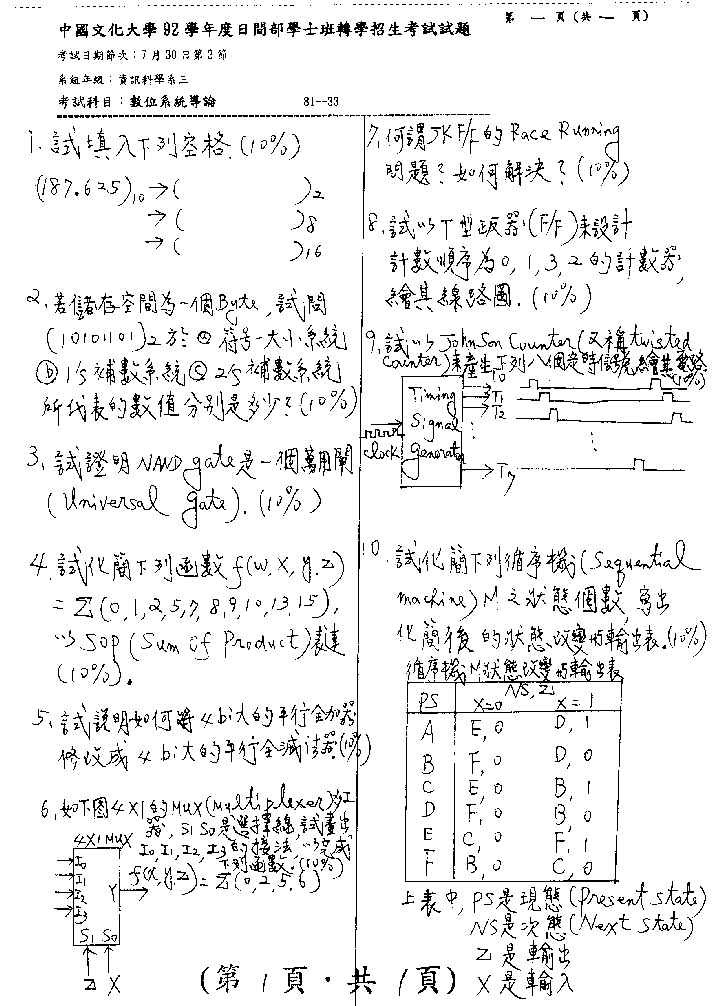 中國文化大學92學年度日間部學士班轉學招生考試試題
第 一 頁(共 一 頁)
考試日期節次:7月30日第2節
系組年級:資訊科學系三
考試科目:數位系統導論 81--33
1. 試填入下列空格.(10%)
(187.625)10 →( )2
→( )8
→( )16
2. 若儲存空間為一個Byte, 試問
(10101101)2於 ⓐ 符號-大小系統
ⓑ 1'S補數系統 ⓒ 2'S補數系統
所代表的數值分別是多少?(10%)
3. 試證明NAND gate是一個萬用閘
(Universal gate).(10%)
4. 試化簡下列函數f(w,x,y,z)
=Σ(0,1,2,5,7,8,9,10,13,15),
以SOP(Sum of Product)表達
(10%).
5. 試說明如何將4 bit的平行全加器
修改成4 bit的平行全減法器.(10%)
6. 如下圖4X1的MUX(Multiplexer)多工
器, S1 S0是選擇線, 試畫出
I0, I1, I2, I3的接法, 以完成
下列函數.(10%)
f(x,y,z)=Σ(0,2,5,6)
4X1 MUX
I0
I1
I2
I3
Y
S1 S0
Z X
7. 何謂JK F/F的Race Running
問題?如何解決?(10%)
8. 試以T型正反器(F/F)來設計
計數順序為0,1,3,2的計數器,
繪其線路圖.(10%)
9. 試以Johnson Counter(又稱twisted
Counter)來產生下列八個定時信號, 繪其電路
(10%)
Timing
Signal
Generator
clock
T0
T1
T2
T7
10. 試化簡下列循序機(Sequential
machine)M之狀態個數, 寫出
化簡後的狀態改變與輸出表.(10%)
循序機M狀態改變與輸出表
NS, Z
PS X=0 X=1
A E,0 D,1
B F,0 D,0
C E,0 B,1
D F,0 B,0
E C,0 F,1
F B,0 C,0
上表中, PS是現態(Present state)
NS是次態(Next state)
Z 是輸出
X 是輸入
(第1頁·共1頁)